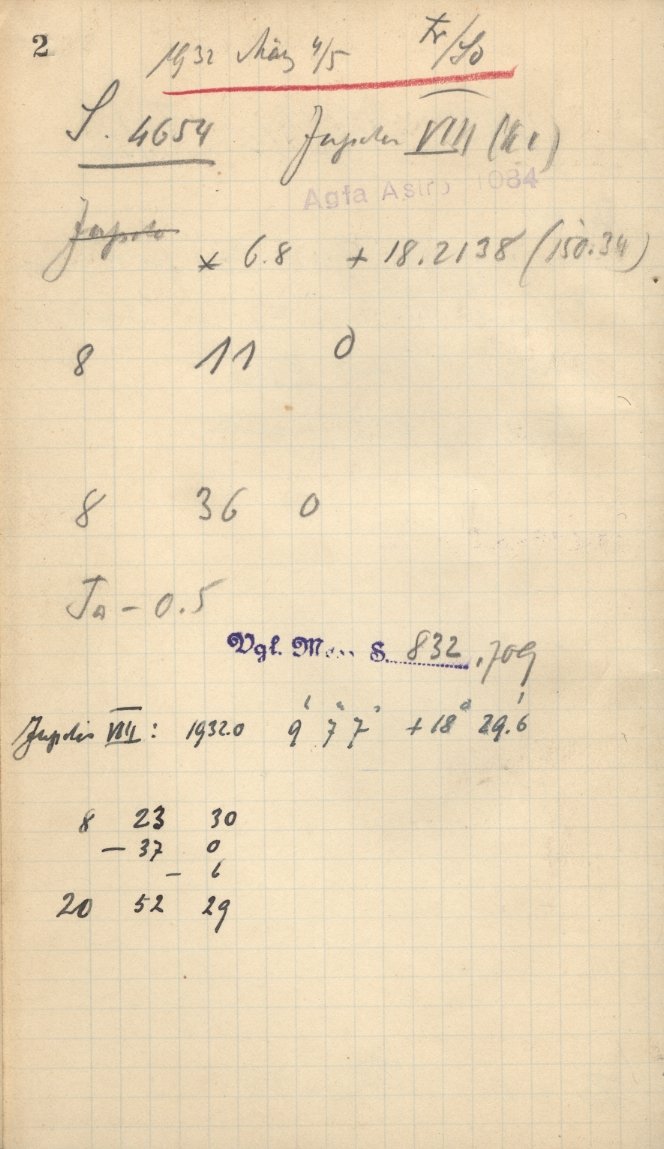 2
1932 März 4/5 Fr/So
S. 4654 Jupiter VIII (
Agfa Astro 1084
Jupiter
* 6.8 + 18.2138 (150.34)
8 11 0
8 36 0
Ta - 0.5
Vgl. Mess S. 832, 709
Jupiter VIII: 1932.0 9 7 7 + 18° 29.6
8 23 30
- 37 0
- 6
20 52 29